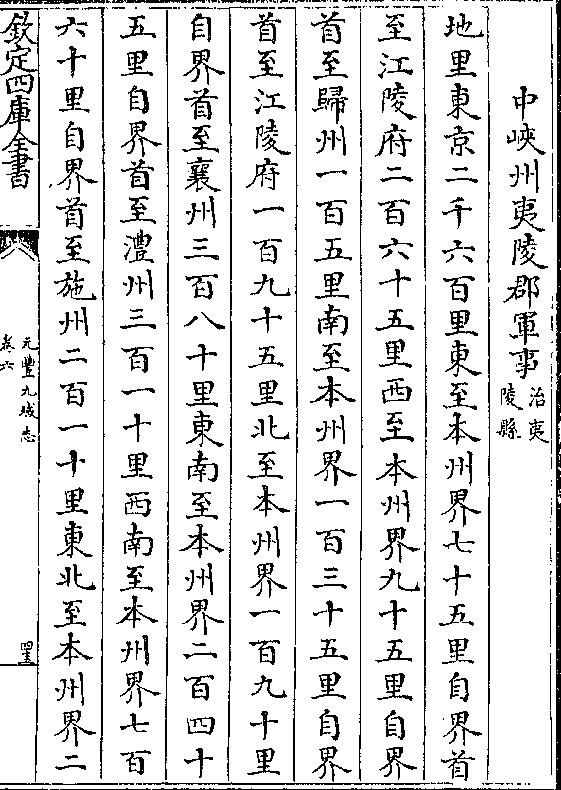 中峽州夷陵郡軍事治夷陵縣
地里東京二千六百里東至本州界七十五里自界首
至江陵府二百六十五里西至本州界九十五里自界
首至歸州一百五里南至本州界一百三十五里自界
首至江陵府一百九十五里北至本州界一百九十里
自界首至襄州三百八十里東南至本州界二百四十
五里自界首至澧州三百一十里西南至本州界七百
六十里自界首至施州二百一十里東北至本州界二
欽定四庫全書
元豐九域志
卷六